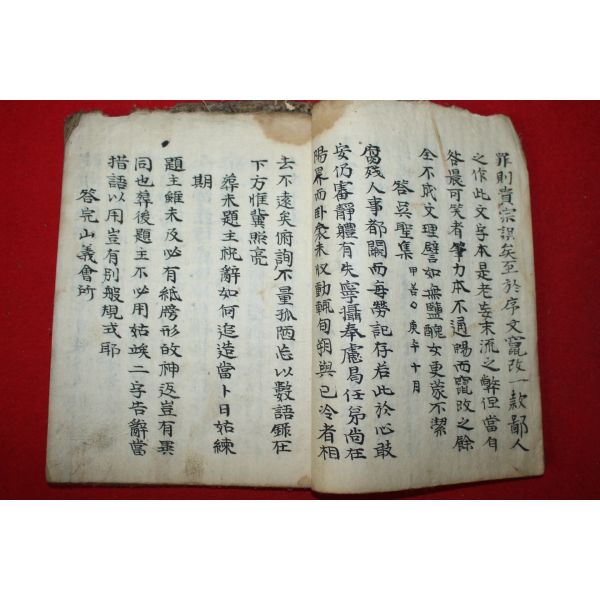 罪則貴宗誤矣至於序文竄改一款鄙人
之作此文字本是老妄末流之弊但當自
咎晨可笑者筆力本不通賜而竄改之餘
全不成文理譬如無鹽醜女更蒙不潔
答吳聖集 甲善〇庚午十月
腐殘人事都闕而每勞記存若此於心敢
安仍審靜軆有失寧攝奉慮局任弟尚在
陽界而卦象未收動輒旬朔與已冷者相
去不遠矣俯詢不量孤陋忘以數語錄在
下方惟冀照亮
葬未題主祝辭如何追造當卜日姑練
期
題主雖未及必有紙牓形的神返豈有異
同也葬後題主不必用姑竢二字告辭當
措語以用豈有別般規式耶
答完山義會所